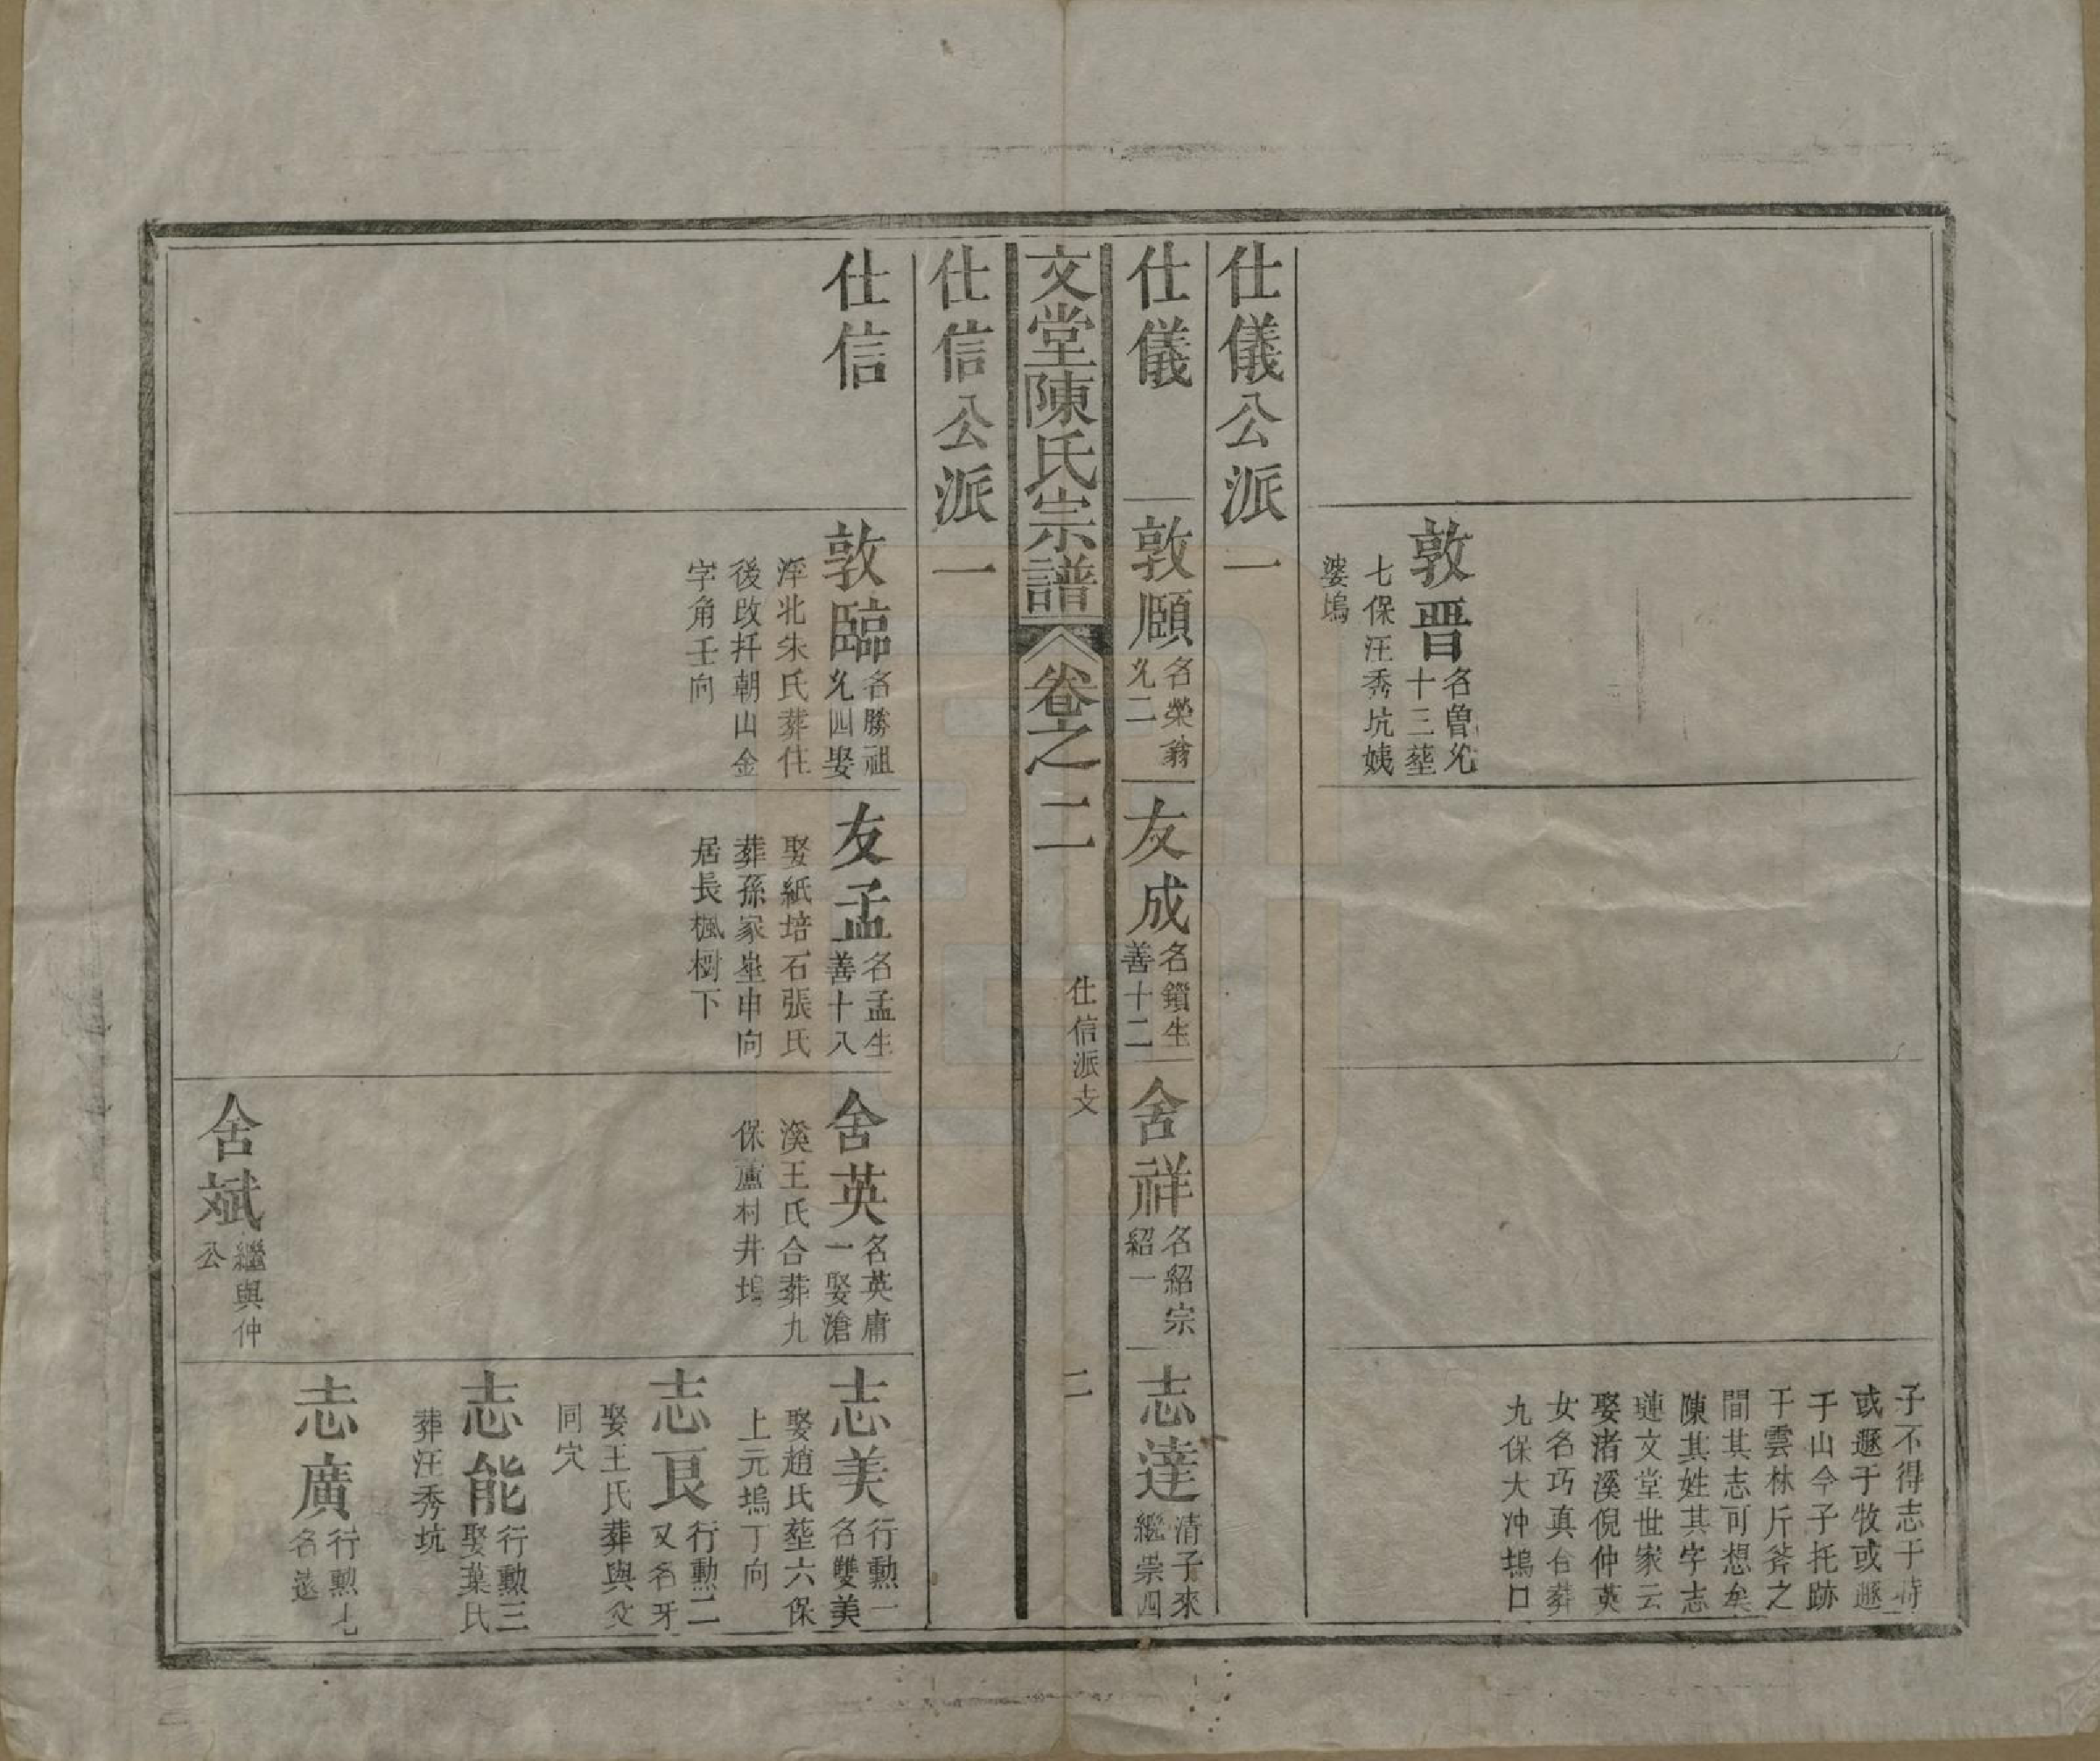 子不得志于時
或遯于牧或遯
于山今子托跡
于雲林斤斧之
間其志可想矣
陳其姓其字志
璉文堂世家云
娶渚溪倪仲英
女名巧真合葬
九保大冲塢口
敦晋
名曽尣
十三塟
七保汪秀坑姨
婆塢
仕儀公派一
仕儀
敦頤
名榮翁
尣二
友成
名鎖生
善十二
舍祥
名紹宗
紹一
志達
清子來
繼崇四
文堂陳氏宗譜
卷之二
仕信派支
二
仕信公派一
仕信
敦臨
名勝祖
尣四娶
浮北朱氏葬住
後改扦朝山金
字角壬向
友孟
名孟生
善十八
娶紙培石張氏
葬孫家坐申向
居長楓樹下
舍英
名英庸
一娶滄
溪王氏合葬九
保蘆村井塢
舍斌
繼與仲
公
志美
行勳一
名雙美
娶趙氏塟六保
上元塢丁向
志良
行勲二
又名牙
娶王氏葬與父
同穴
志能
行勲三
娶葉氏
葬汪秀坑
志廣
行勲七
名遠